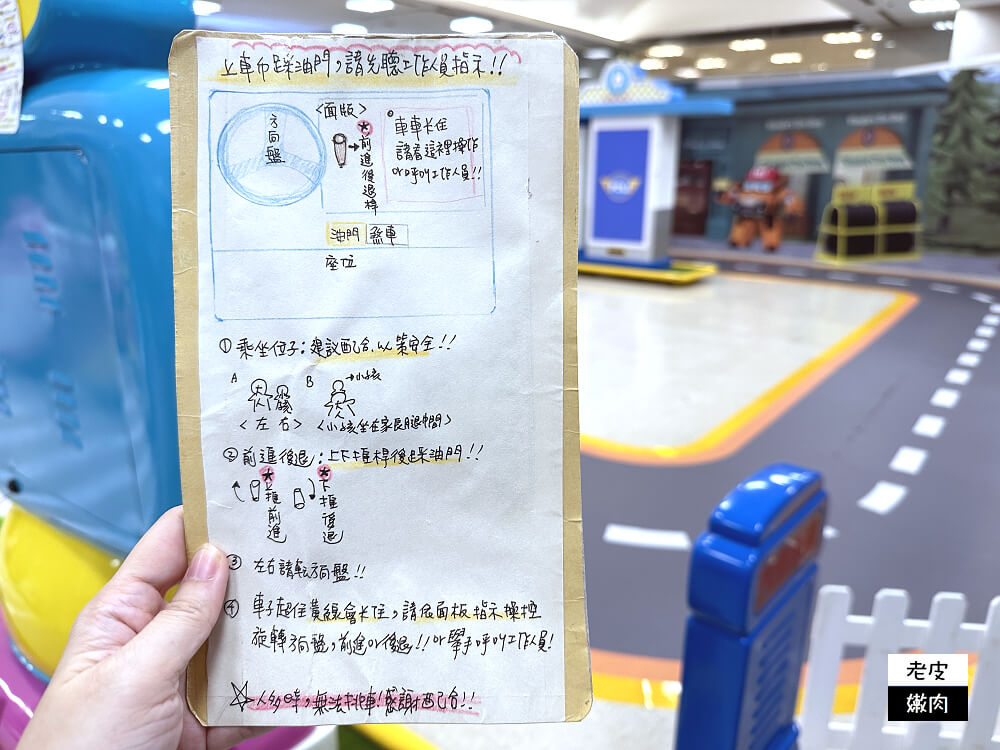 上車勿踩油門,請先聽工作人員指示!!
<面版>
方向盤
前進後退桿
車車卡住
請看這裡操作
or呼叫工作人員!!
油門 煞車
座位
①乘坐位子:建議配合,以策安全!!
A B →小孩
<左 右> <小孩坐在家長腿中間>
②前進後退:上下推桿後踩油門!!
上推前進
下推後退
③ 左右請轉方向盤!!
④ 車子超住黃線會卡住,請依面板指示操控
旋轉方向盤,前進or後退!!or舉手呼叫工作人員!
☆人多時,無法挑車!感謝配合!!
老皮
嫩肉